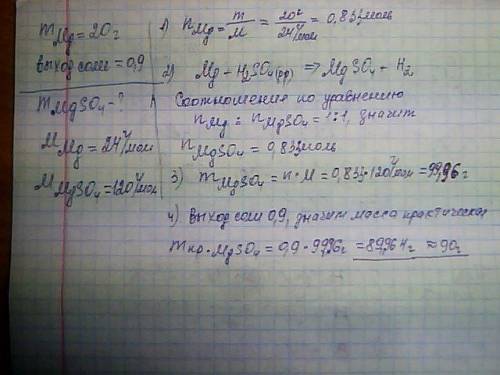 m Mg = 20г
выход соли = 0,9
m MgSO4 - ?
M Mg = 24 г/моль
M MgSO4 = 120 г/моль
1) n Mg = m/M = 20г/24 г/моль = 0,833 моль
2) Mg + H2SO4(рр) => MgSO4 + H2
Соотношение по уравнению
n Mg : n MgSO4 = 1:1, значит
n MgSO4 = 0,833 моль
3) m MgSO4 = n·M = 0,833·120 г/моль = 99,96 г
4) выход соли 0,9, значит масса практическая
m пр. MgSO4 = 0,9·99,96г = 89,964г ≈ 90г